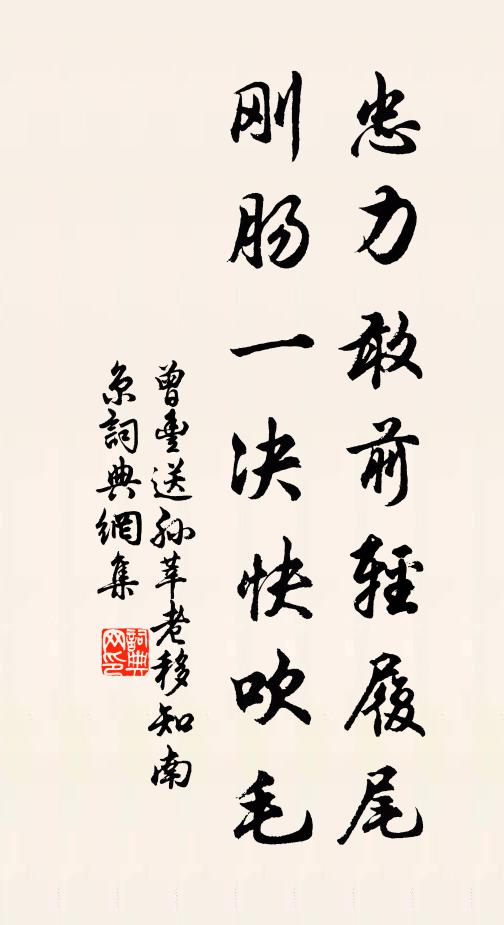 忠力敢前輕履尾
刚肠一决快吹毛
曾豐送孙莘老移知南
京詞典網集
詞典网印